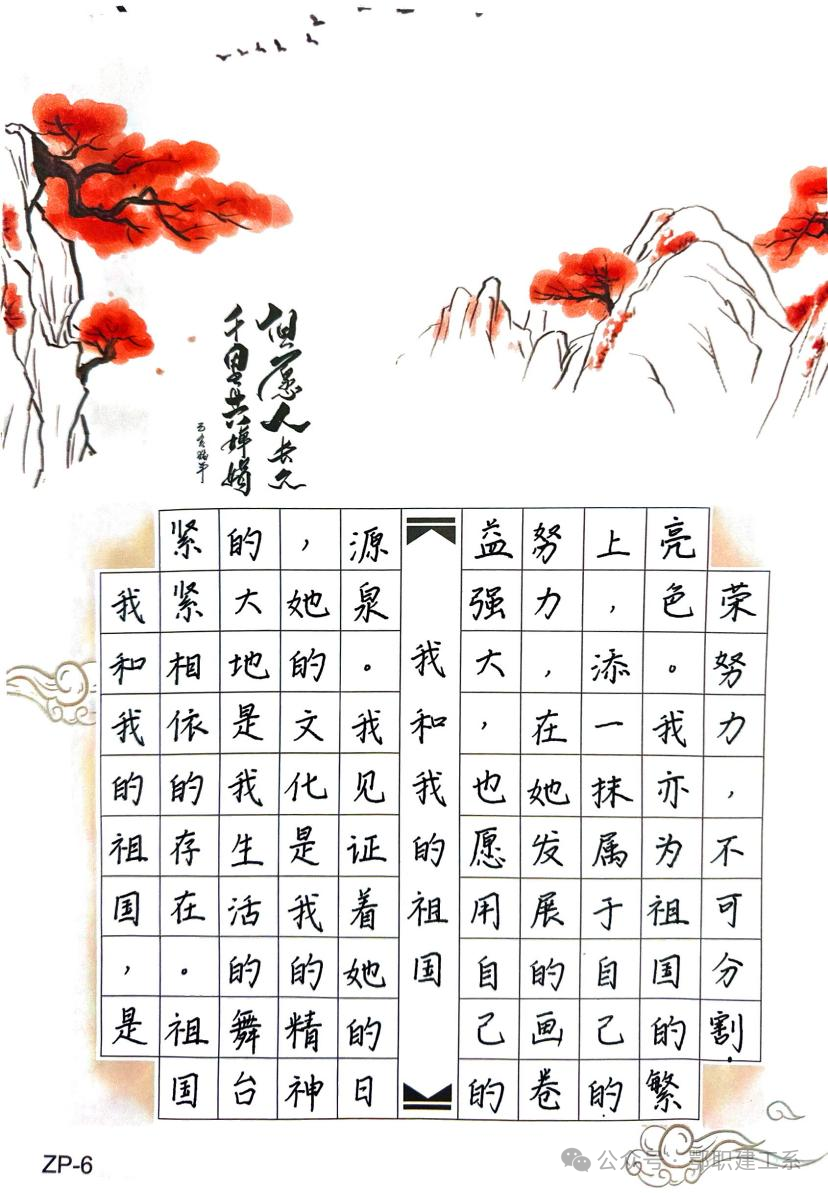 但愿人长久
千里共婵娟
我和我的祖国，是
紧紧相依的存在。祖国
的大地是我生活的舞台
，她的文化是我的精神
源泉。我见证着她的日
我和我的祖国
益强大，也愿用自己的
努力，在她发展的画卷
上，添一抹属于自己的
亮色。我亦为祖国的繁
荣努力，不可分割.
ZP-6
公众号·鄂职建工系